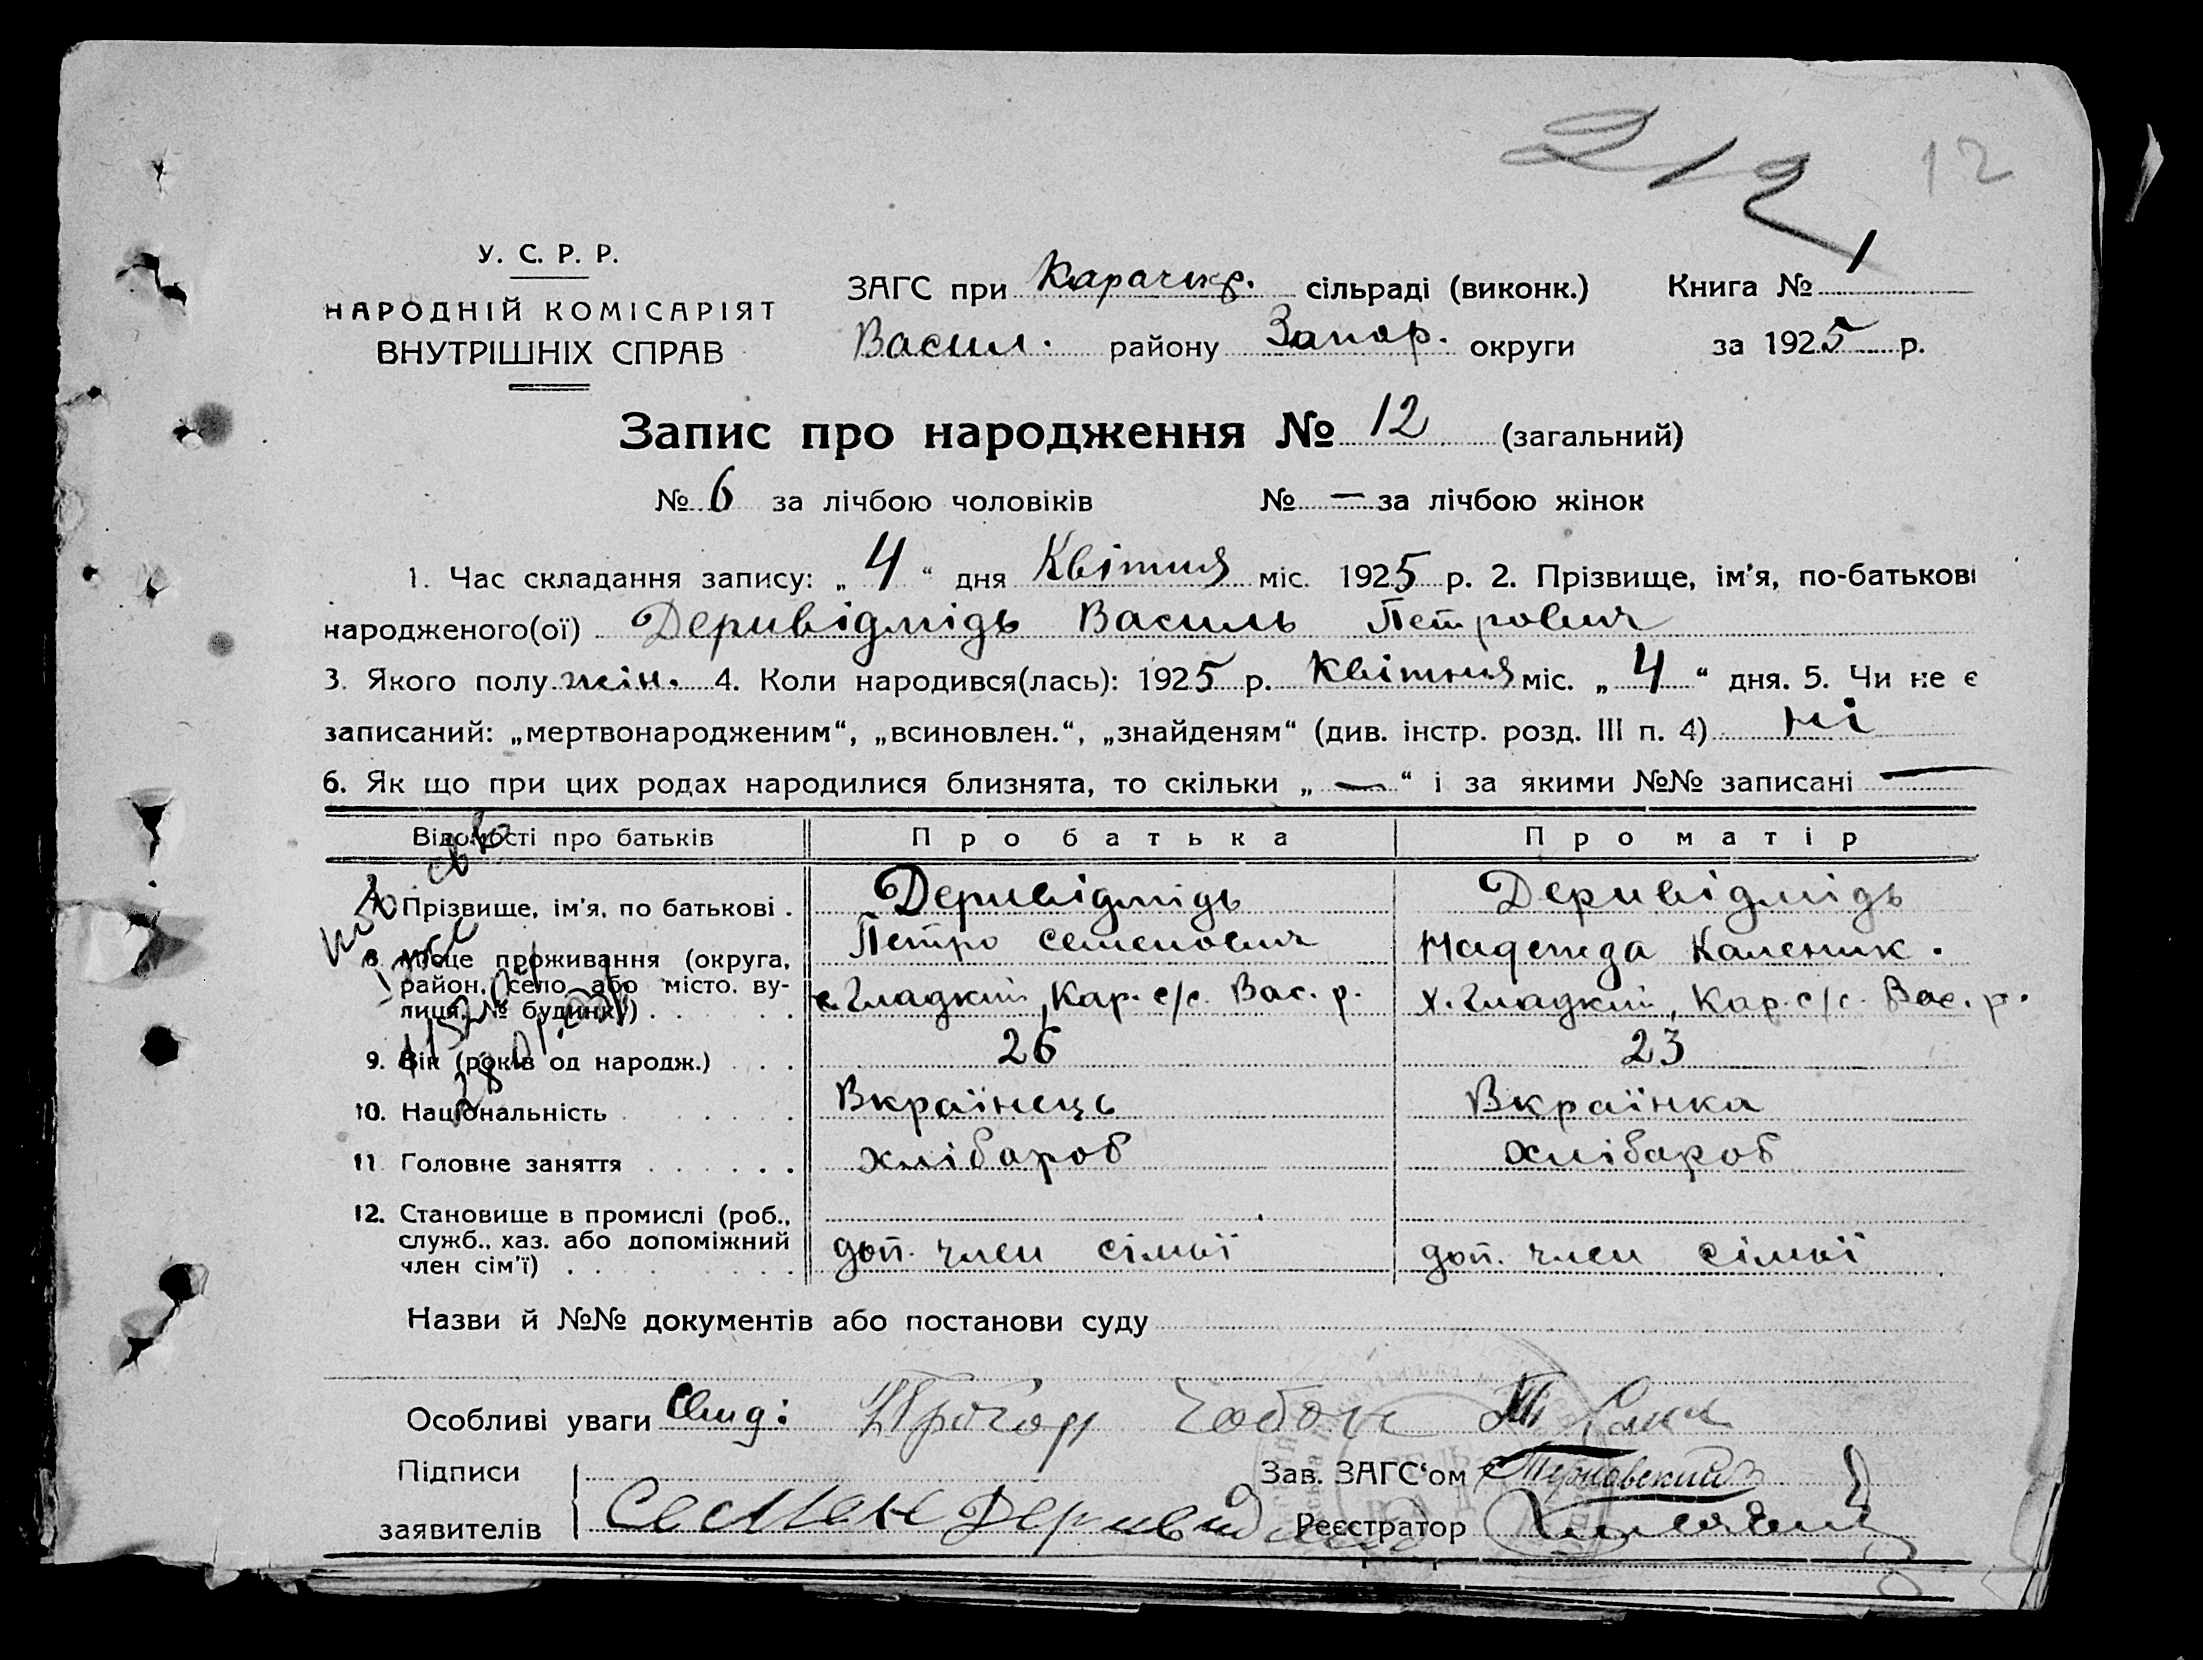 212
12
У. С. Р. Р.
НАРОДНІЙ КОМІСАРІЯТ
ВНУТРІШНІХ СПРАВ
ЗАГС при Карачик. сільраді (виконк.) Книга № 1
Васил. району Запор. округи за 1925 р.
Запис про народження № 12 (загальний)
№ 6 за лічбою чоловіків № — за лічбою жінок
1. Час складання запису: „ 4 “ дня Квітня міс. 1925 р. 2. Прізвище, ім'я, по-батькові
народженого(ої) Деривідмідь Василь Петрович
3. Якого полу жін. 4. Коли народився(лась): 1925 р. Квітня міс. „ 4 “ дня. 5. Чи не є
записаний: „мертвонародженим“, „всиновлен.“, „знайденям“ (див. інстр. розд. III п. 4) ні
6. Як що при цих родах народилися близнята, то скільки „ — “ і за якими №№ записані —
Відомості про батьків Про батька Про матір
7. Прізвище, ім'я, по батькові . Деривідмідь Деривідмідь
Петро Семенович Надежда Каленик.
8. Місце проживання (округа,
район, село, або місто, ву-
лиця, № будинку) . . . с. Гладкий, Кар. с/с. Вас. р. х. Гладкий, Кар. с/с. Вас. р.
9. Вік (років од народж.) . . . 26 23
10. Національність Вкраїнець Вкраїнка
11. Головне заняття . . . . . . хлібароб хлібароб
12. Становище в промислі (роб.,
служб., хаз. або допоміжний
член сім'ї) . . доп. член сімьї доп. член сімьї
Назви й №№ документів або постанови суду
Особливі уваги Свид: Чабан
Підписи Зав. ЗАГС‘ом Терновский
заявителів Семен Деривідмід Реєстратор